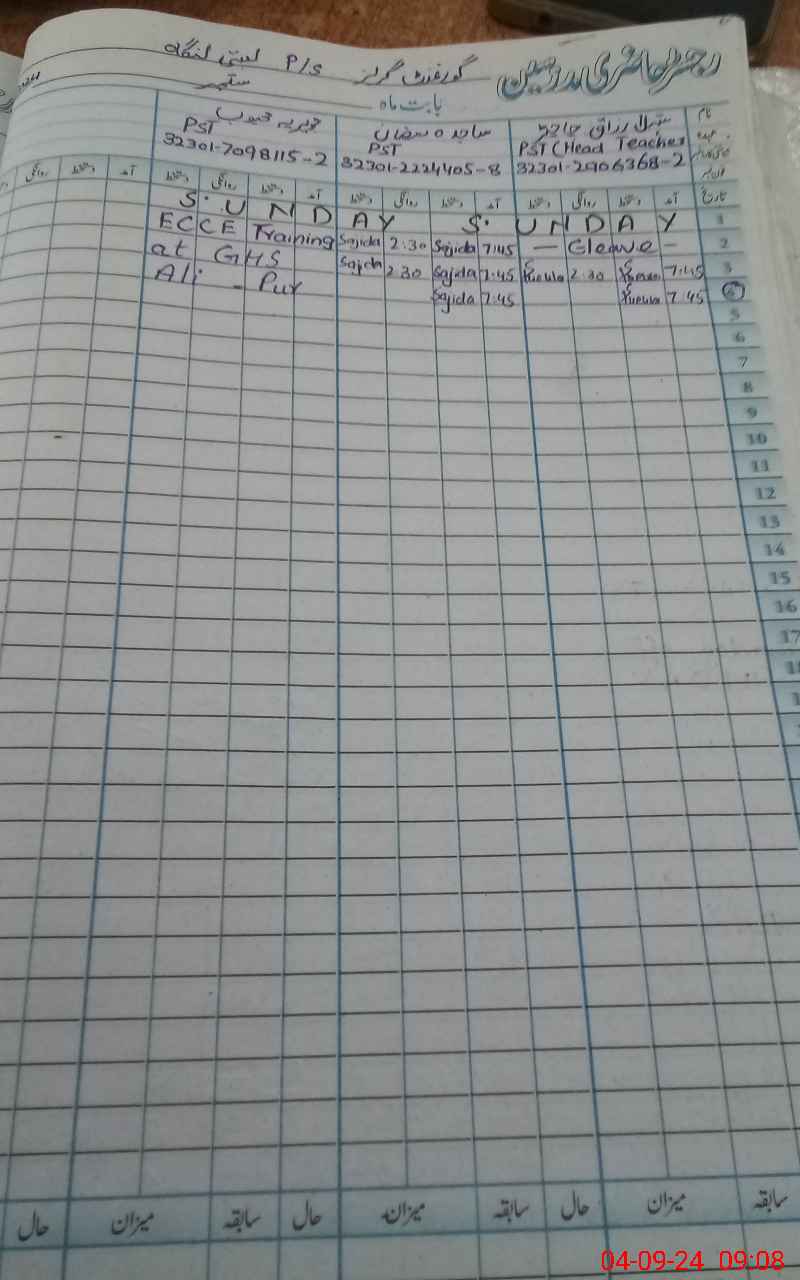 رجسٹر حاضری مدرسین گورنمنٹ گرلز P/S بستی لنگاہ
بابت ماہ ستمبر
نام
PST (Head Teacher
32301-2906368-2
PST
32301-2224405-8
PST
32301-7098115-2
تاریخ آمد دستخط روانگی دستخط آمد دستخط روانگی دستخط آمد دستخط روانگی دستخط آمد دستخط روانگی
1 S. U N D A Y S. U N D A Y
2 7:45 Sajida 2:30 Sajida ECCE Training
3 7:45 2:30 7:45 Sajida 2:30 Sajida at GHS
7:45 7:45 Sajida Ali - Pur
5
6
7
8
9
10
11
12
13
14
15
16
17
سابقہ میزان حال سابقہ میزان حال سابقہ میزان حال
04-09-24 09:08